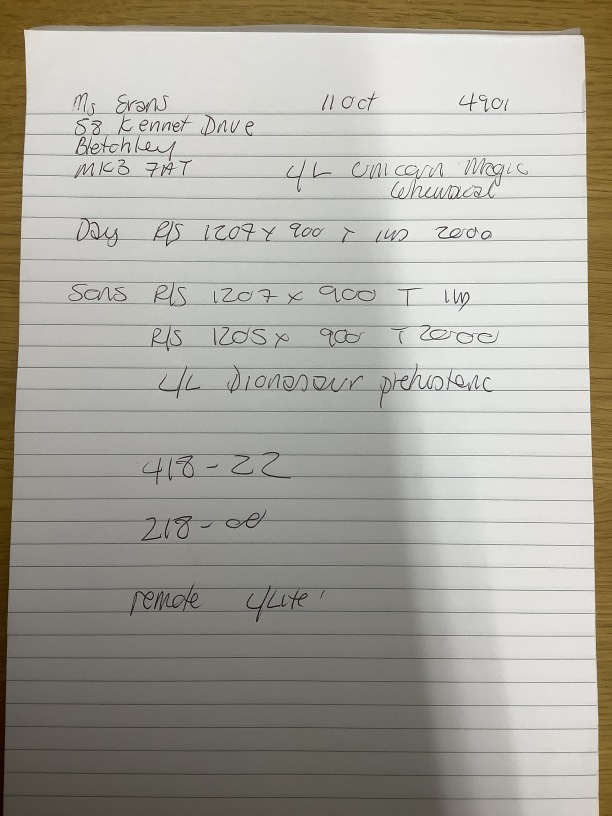 Ms Evans 11 Oct 4901
58 Kennet Drive
Bletchley
MK3 7AT C/L Unicorn Magic
Whimsical
Day R/S 1207 x 900 T 1W 2000
Sons R/S 1207 x 900 T 1W
R/S 1205 x 900 T 2000
C/L Dionosaur prehistoric
418-22
218-00
remote C/Lite